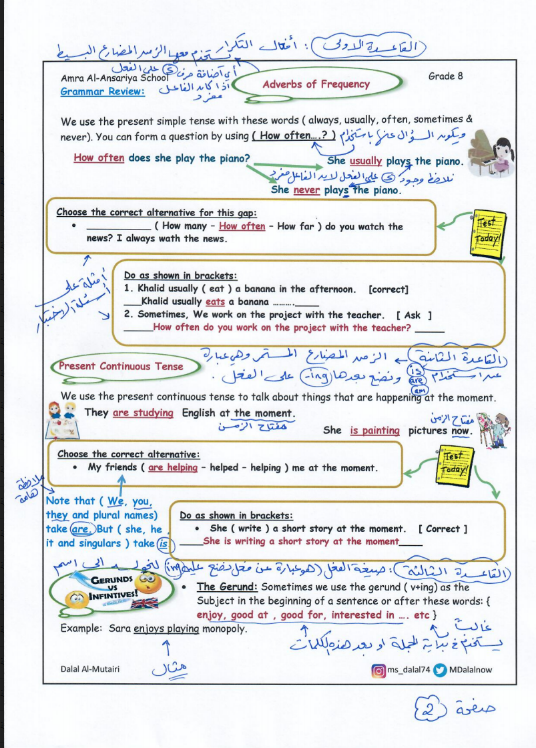 القاعدة الاولى : أفعال التكرار يستخدم معها الزمن المضارع البسيط
أي اضافة حرف (s) على الفعل
اذا كان الفاعل
مفرد
Amra Al-Ansariya School
Grammar Review:
Adverbs of Frequency
Grade 8
We use the present simple tense with these words ( always, usually, often, sometimes &
never). You can form a question by using ( How often….? )
ويكون السؤال عنها باستخدام
How often does she play the piano?
She usually plays the piano.
نلاحظ وجود (s) على الفعل لأن الفاعل مفرد
She never plays the piano.
Choose the correct alternative for this gap:
• ____________ ( How many – How often – How far ) do you watch the
news? I always wath the news.
Test
Today!
أمثلة على
اسئلة الاختبار
Do as shown in brackets:
1. Khalid usually ( eat ) a banana in the afternoon. [correct]
___Khalid usually eats a banana ……….____
2. Sometimes, We work on the project with the teacher. [ Ask ]
_____How often do you work on the project with the teacher? _____
القاعدة الثانية ← الزمن المضارع المستمر وهي عبارة
عن استخدام (is are am) ونضع بعدها (ing-) على الفعل .
Present Continuous Tense
We use the present continuous tense to talk about things that are happening at the moment.
They are studying English at the moment.
مفتاح الزمن
She is painting pictures now.
مفتاح الزمن
Choose the correct alternative:
• My friends ( are helping – helped – helping ) me at the moment.
Test
Today!
ملاحظة
هامة
Note that ( We, you,
they and plural names)
take are, But ( she, he ,
it and singulars ) take is
Do as shown in brackets:
• She ( write ) a short story at the moment. [ Correct ]
_____She is writing a short story at the moment____
القاعدة الثالثة : صيغة الفعل (هو عبارة عن فعل نضع عليه ing) للتحول الى اسم
GERUNDS
VS
INFINTIVES!
• The Gerund: Sometimes we use the gerund ( v+ing) as the
Subject in the beginning of a sentence or after these words: {
enjoy, good at , good for, interested in …. etc }
غالباً
يستخدم في بداية الجملة او بعد هذه الكلمات
Example: Sara enjoys playing monopoly.
مثال
Dalal Al-Mutairi
ms_dalal74
MDalalnow
صفحة 2